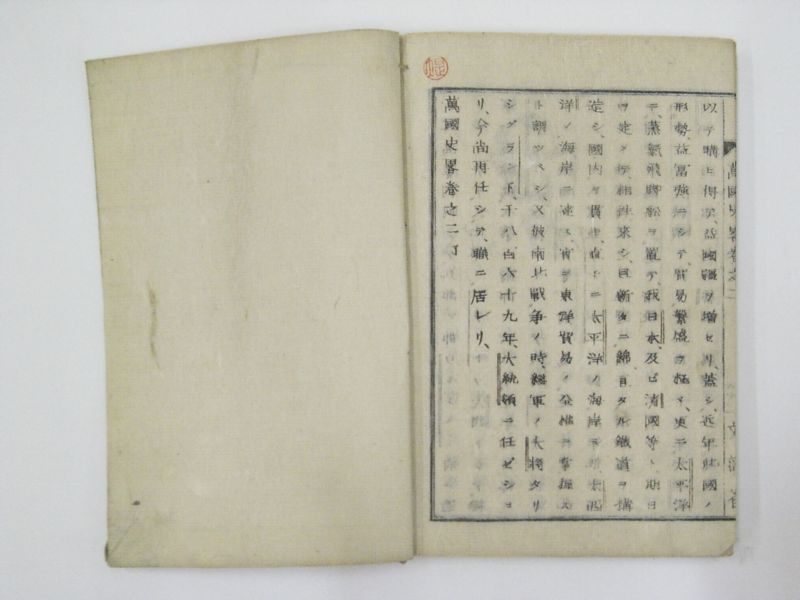 以テ購ヒ得テ、益國疆ヲ増セリ、蓋シ、近年此國ノ
形勢、益富強ニシテ、貿易繁盛ヲ極メ、更ニ太平洋
ニ、蒸氣飛脚船ヲ置テ、我日本及ビ清國等ト、期日
ヲ定メ、往來シ、且新タニ綿亘タル鐵道ヲ搆
造シ、國内ヲ貫キ、直ニ太平洋ノ海岸ヨリ、太西
洋ノ海岸ニ達ス、實ニ東洋貿易ノ全權ヲ掌握ス
ト謂ツベシ、又彼南北戰争ノ時、總軍ノ大將タリ
シグラント、千八百六十九年、大統領ニ任ゼシヨ
リ、今尚再任シテ、職ニ居レリ、
萬國史畧卷之二 了
萬國史畧卷之二